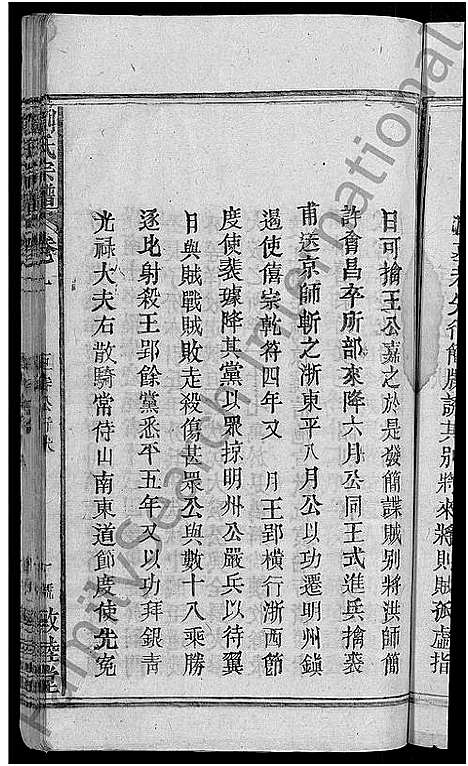 先行簡牒説其別將來將則賊孤虛指
日可擒王公嘉之於是發簡諜賊别將洪師簡
許會昌卒所部來降六月公同王式進兵擒裘
甫送京師斬之浙東平八月公以功遷明州鎭
遏使僖宗乾符四年又 月王郢橫行浙西節
度使裴璩降其黨以眾掠明州公嚴兵以待翼
日與賊戰賊敗走殺傷甚眾公與數十八乘勝
逐北射殺王郢餘黨悉平五年又以功拜銀青
光禄大夫右散騎常侍山南東道節度使先寃
劉氏宗譜 卷一
敦睦堂
FamilySearch International